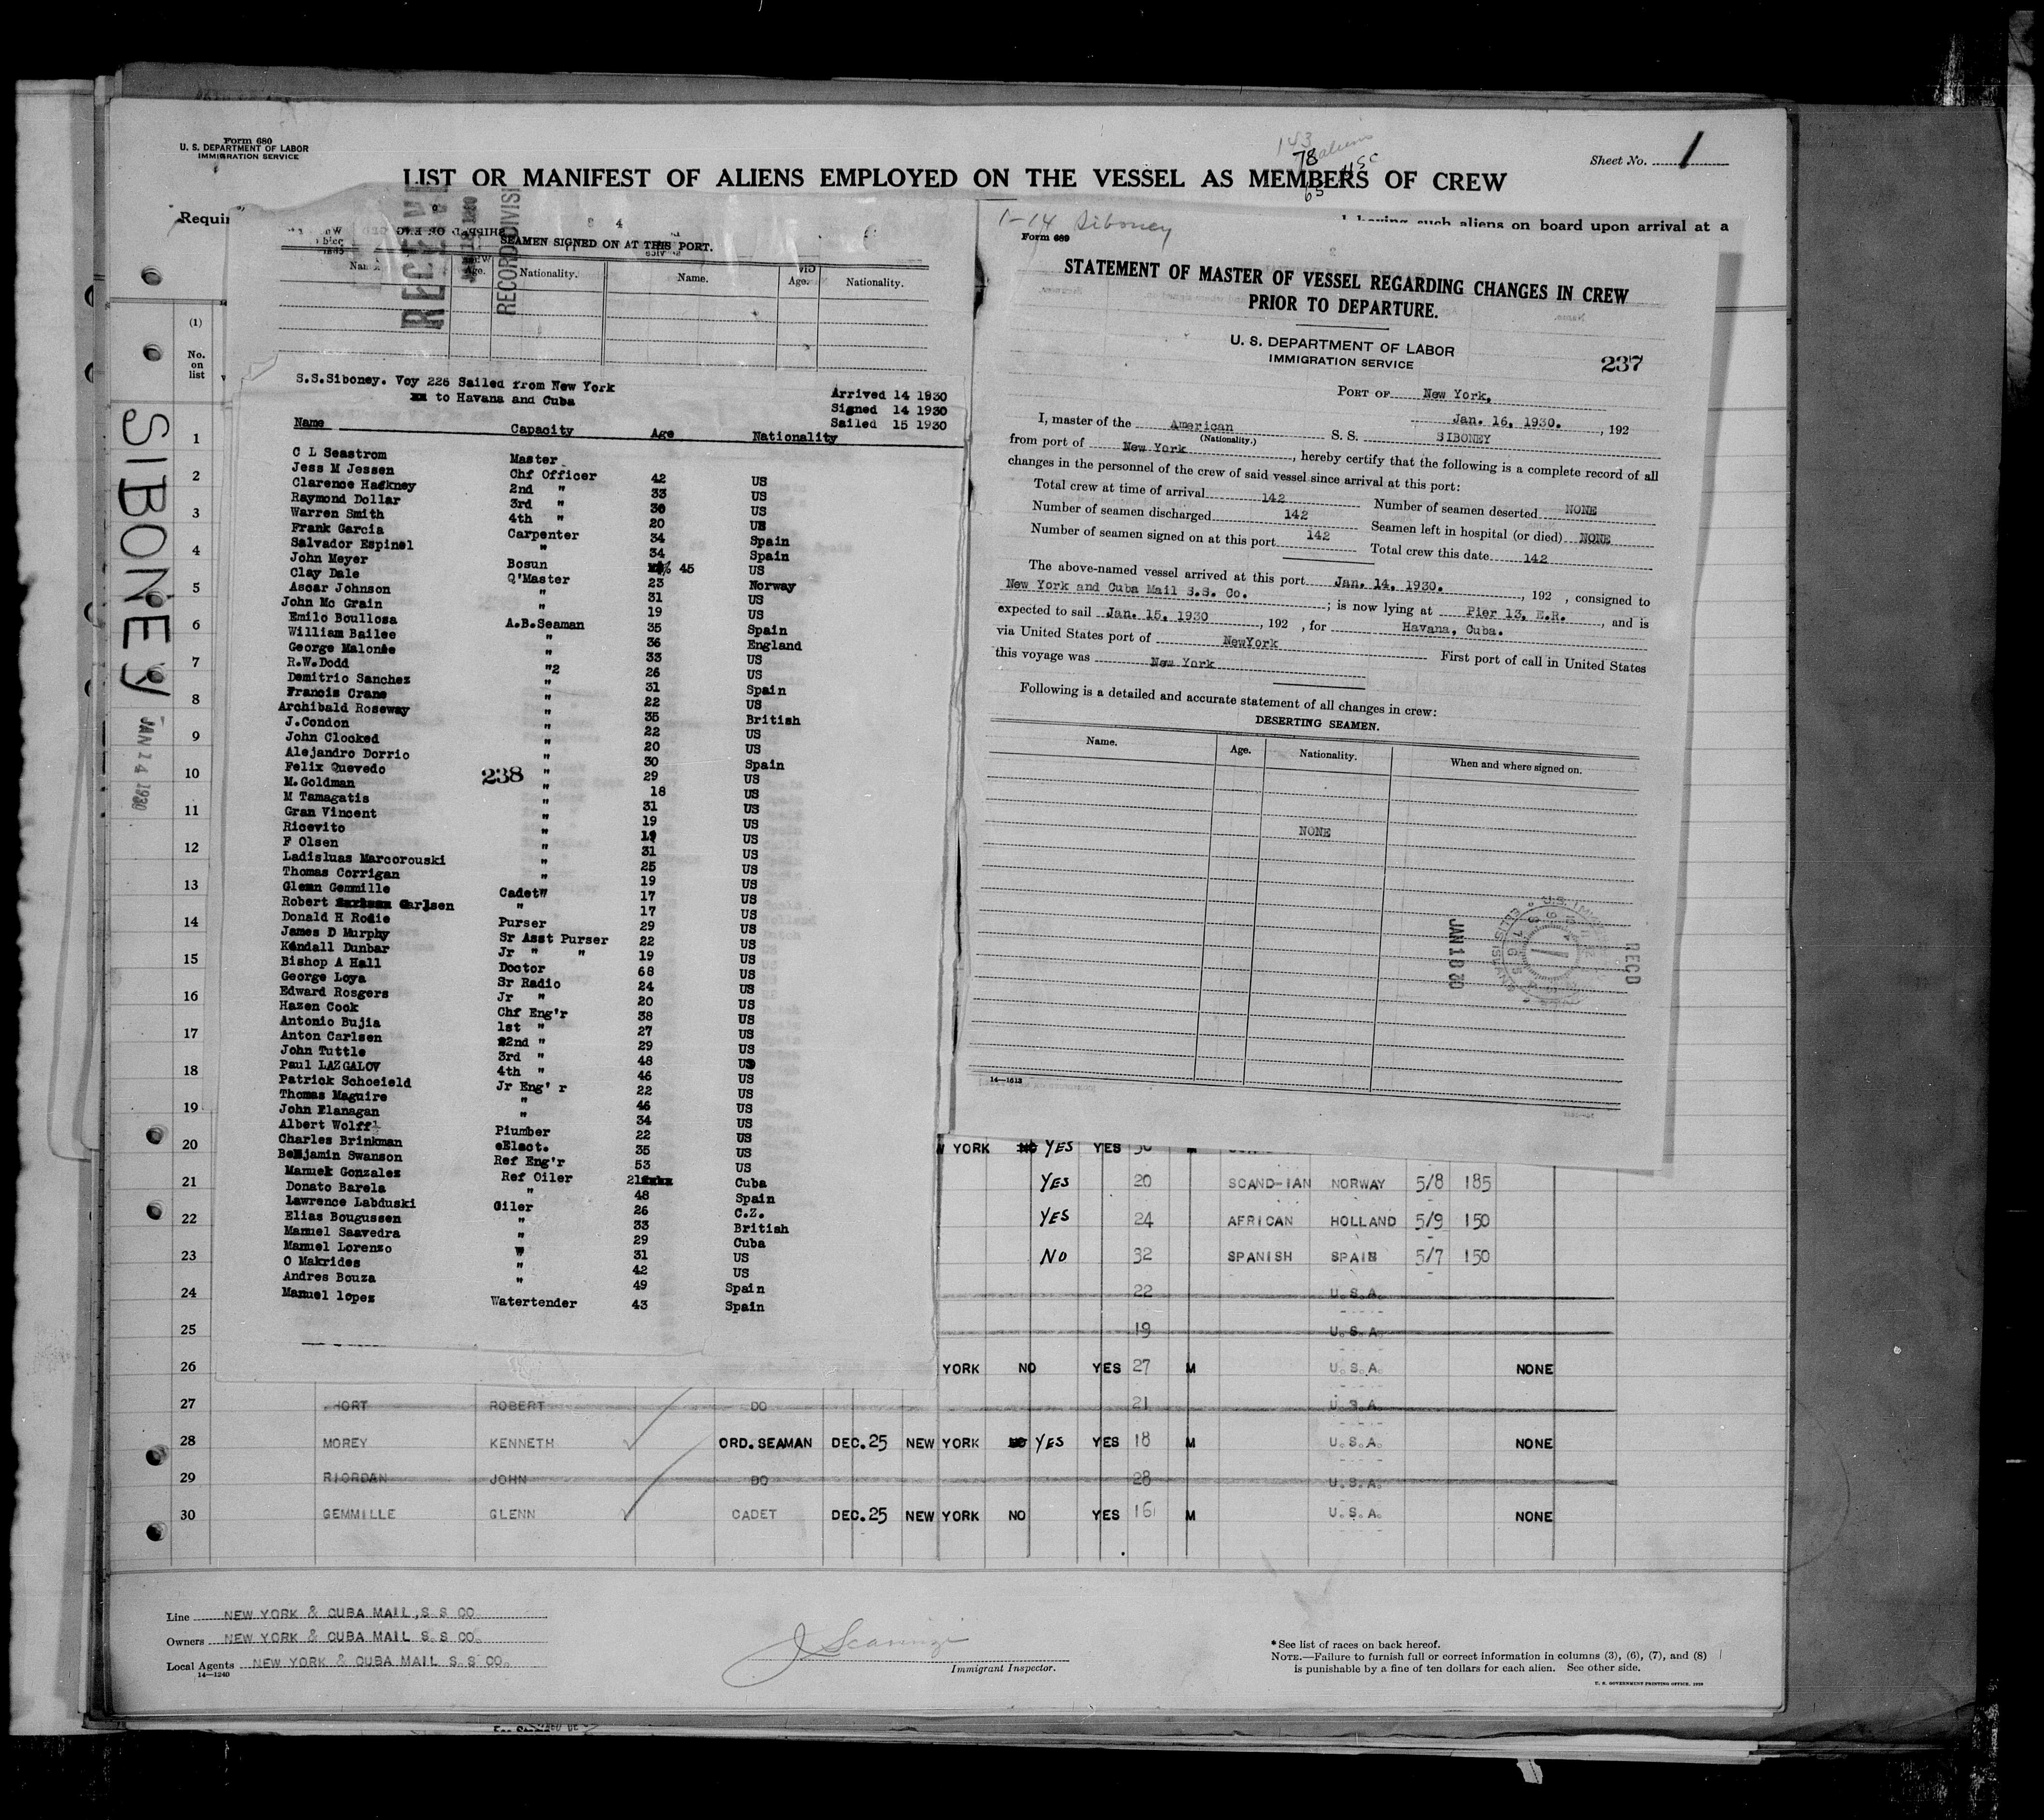 Form 680
U. S. DEPARTMENT OF LABOR
IMMIGRATION SERVICE
143 aliens
78
65
Sheet No. 1
LIST OR MANIFEST OF ALIENS EMPLOYED ON THE VESSEL AS MEMBERS OF CREW
such aliens on board upon arrival at a
(1)
No. on list
SIBONEY
JAN 14 1930
RECORD DIVISI
SEAMEN SIGNED ON AT THIS PORT.
Name. Age. Nationality. Name. Age. Nationality.
S.S.Siboney. Voy 226 Sailed from New York
to Havana and Cuba
Arrived 14 1930
Signed 14 1930
Sailed 15 1930
Name Capacity Age Nationality
C L Seastrom Master
Jess M Jessen Chf Officer 42 US
Clarence Hackney 2nd " 33 US
Raymond Dollar 3rd " 30 US
Warren Smith 4th " 20 US
Frank Garcia Carpenter 34 Spain
Salvador Espinel " 34 Spain
John Meyer Bosun 45 US
Clay Dale Q'Master 23 Norway
Ascar Johnson " 31 US
John Mc Grain " 19 US
Emilo Boullosa A.B.Seaman 35 Spain
William Bailee " 36 England
George Malonie " 33 US
R.W.Dodd "2 26 US
Demitrio Sanchez " 31 Spain
Francis Crane " 22 US
Archibald Roseway " 35 British
J.Condon " 22 US
John Clocked " 20 US
Alejandro Dorrio " 30 Spain
Felix Quevedo " 29 US
238
M.Goldman " 18 US
M Tamagatis " 31 US
Gran Vincent " 19 US
Ricevito " 19 US
F Olsen " 31 US
Ladisluas Marcorouski " 25 US
Thomas Corrigan " 19 US
Glenn Gemmille Cadet" 17 US
Robert Carlsen " 17 US
Donald H Rodie Purser 29 US
James D Murphy Sr Asst Purser 22 US
Kendall Dunbar Jr " " 19 US
Bishop A Hall Doctor 68 US
George Loya Sr Radio 24 US
Edward Rosgers Jr " 20 US
Hazen Cook Chf Eng'r 38 US
Antonio Bujia 1st " 27 US
Anton Carlsen 2nd " 29 US
John Tuttle 3rd " 48 US
Paul LAZGALOV 4th " 46 US
Patrick Schoeield Jr Eng'r 22 US
Thomas Maguire " 46 US
John Flanagan " 34 US
Albert Wolff Plumber 22 US
Charles Brinkman eElect. 35 US
Benjamin Swanson Ref Eng'r 53 US
Manuek Gonzales Ref Oiler 21 Cuba
Donato Barela " 48 Spain
Lawrence Labduski Oiler 26 C.Z.
Elias Bougussen " 33 British
Manuel Saavedra " 29 Cuba
Manuel Lorenzo " 31 US
O Makrides " 42 US
Andres Bouza " 49 Spain
Manuel lopez Watertender 43 Spain
1-14 Siboney
Form 689
STATEMENT OF MASTER OF VESSEL REGARDING CHANGES IN CREW
PRIOR TO DEPARTURE.
U. S. DEPARTMENT OF LABOR
IMMIGRATION SERVICE
237
PORT OF New York,
Jan. 16, 1930. , 192
I, master of the American S. S. SIBONEY
(Nationality.)
from port of New York , hereby certify that the following is a complete record of all
changes in the personnel of the crew of said vessel since arrival at this port:
Total crew at time of arrival 142 Number of seamen deserted NONE
Number of seamen discharged 142 Seamen left in hospital (or died) NONE
Number of seamen signed on at this port 142 Total crew this date 142
The above-named vessel arrived at this port Jan. 14, 1930. , 192 , consigned to
New York and Cuba Mail S.S. Co. ; is now lying at Pier 13, E.R. , and is
expected to sail Jan. 15, 1930 , 192 , for Havana, Cuba.
via United States port of NewYork First port of call in United States
this voyage was New York
Following is a detailed and accurate statement of all changes in crew:
DESERTING SEAMEN.
Name. Age. Nationality. When and where signed on.
NONE
JAN 18 30
RECD
14—1613
1
2
3
4
5
6
7
8
9
10
11
12
13
14
15
16
17
18
19
20 YORK YES YES
21 YES 20 SCAND-IAN NORWAY 5/8 185
22 YES 24 AFRICAN HOLLAND 5/9 150
23 NO 32 SPANISH SPAIN 5/7 150
24 22 U.S.A.
25 19 U.S.A.
26 YORK NO YES 27 M U.S.A. NONE
27 HORT ROBERT DO 21 U.S.A.
28 MOREY KENNETH ORD. SEAMAN DEC. 25 NEW YORK NO YES YES 18 M U.S.A. NONE
29 RIORDAN JOHN DO 28 U.S.A.
30 GEMMILLE GLENN CADET DEC. 25 NEW YORK NO YES 16 M U.S.A. NONE
Line NEW YORK & CUBA MAIL, S S CO.
Owners NEW YORK & CUBA MAIL S. S CO.
Local Agents NEW YORK & CUBA MAIL S. S CO.
14—1240
Immigrant Inspector.
*See list of races on back hereof.
NOTE.—Failure to furnish full or correct information in columns (3), (6), (7), and (8)
is punishable by a fine of ten dollars for each alien. See other side.
U. S. GOVERNMENT PRINTING OFFICE